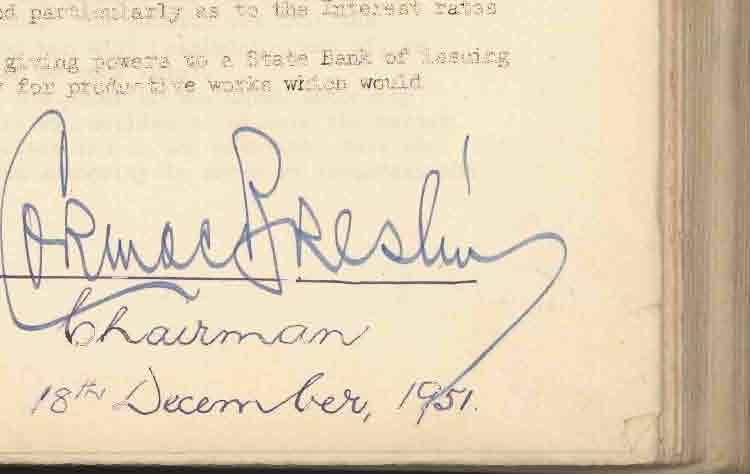 d particularly as to the Interest rates
giving powers to a State Bank of issuing
for productive works which would
Cormac Breslin
Chairman
18th December, 1951.